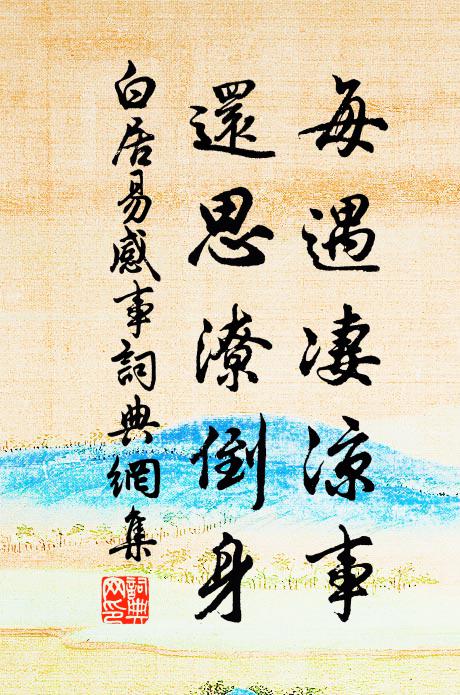 每遇凄涼事
還思潦倒身
白居易感事詞典網集
詞典網印